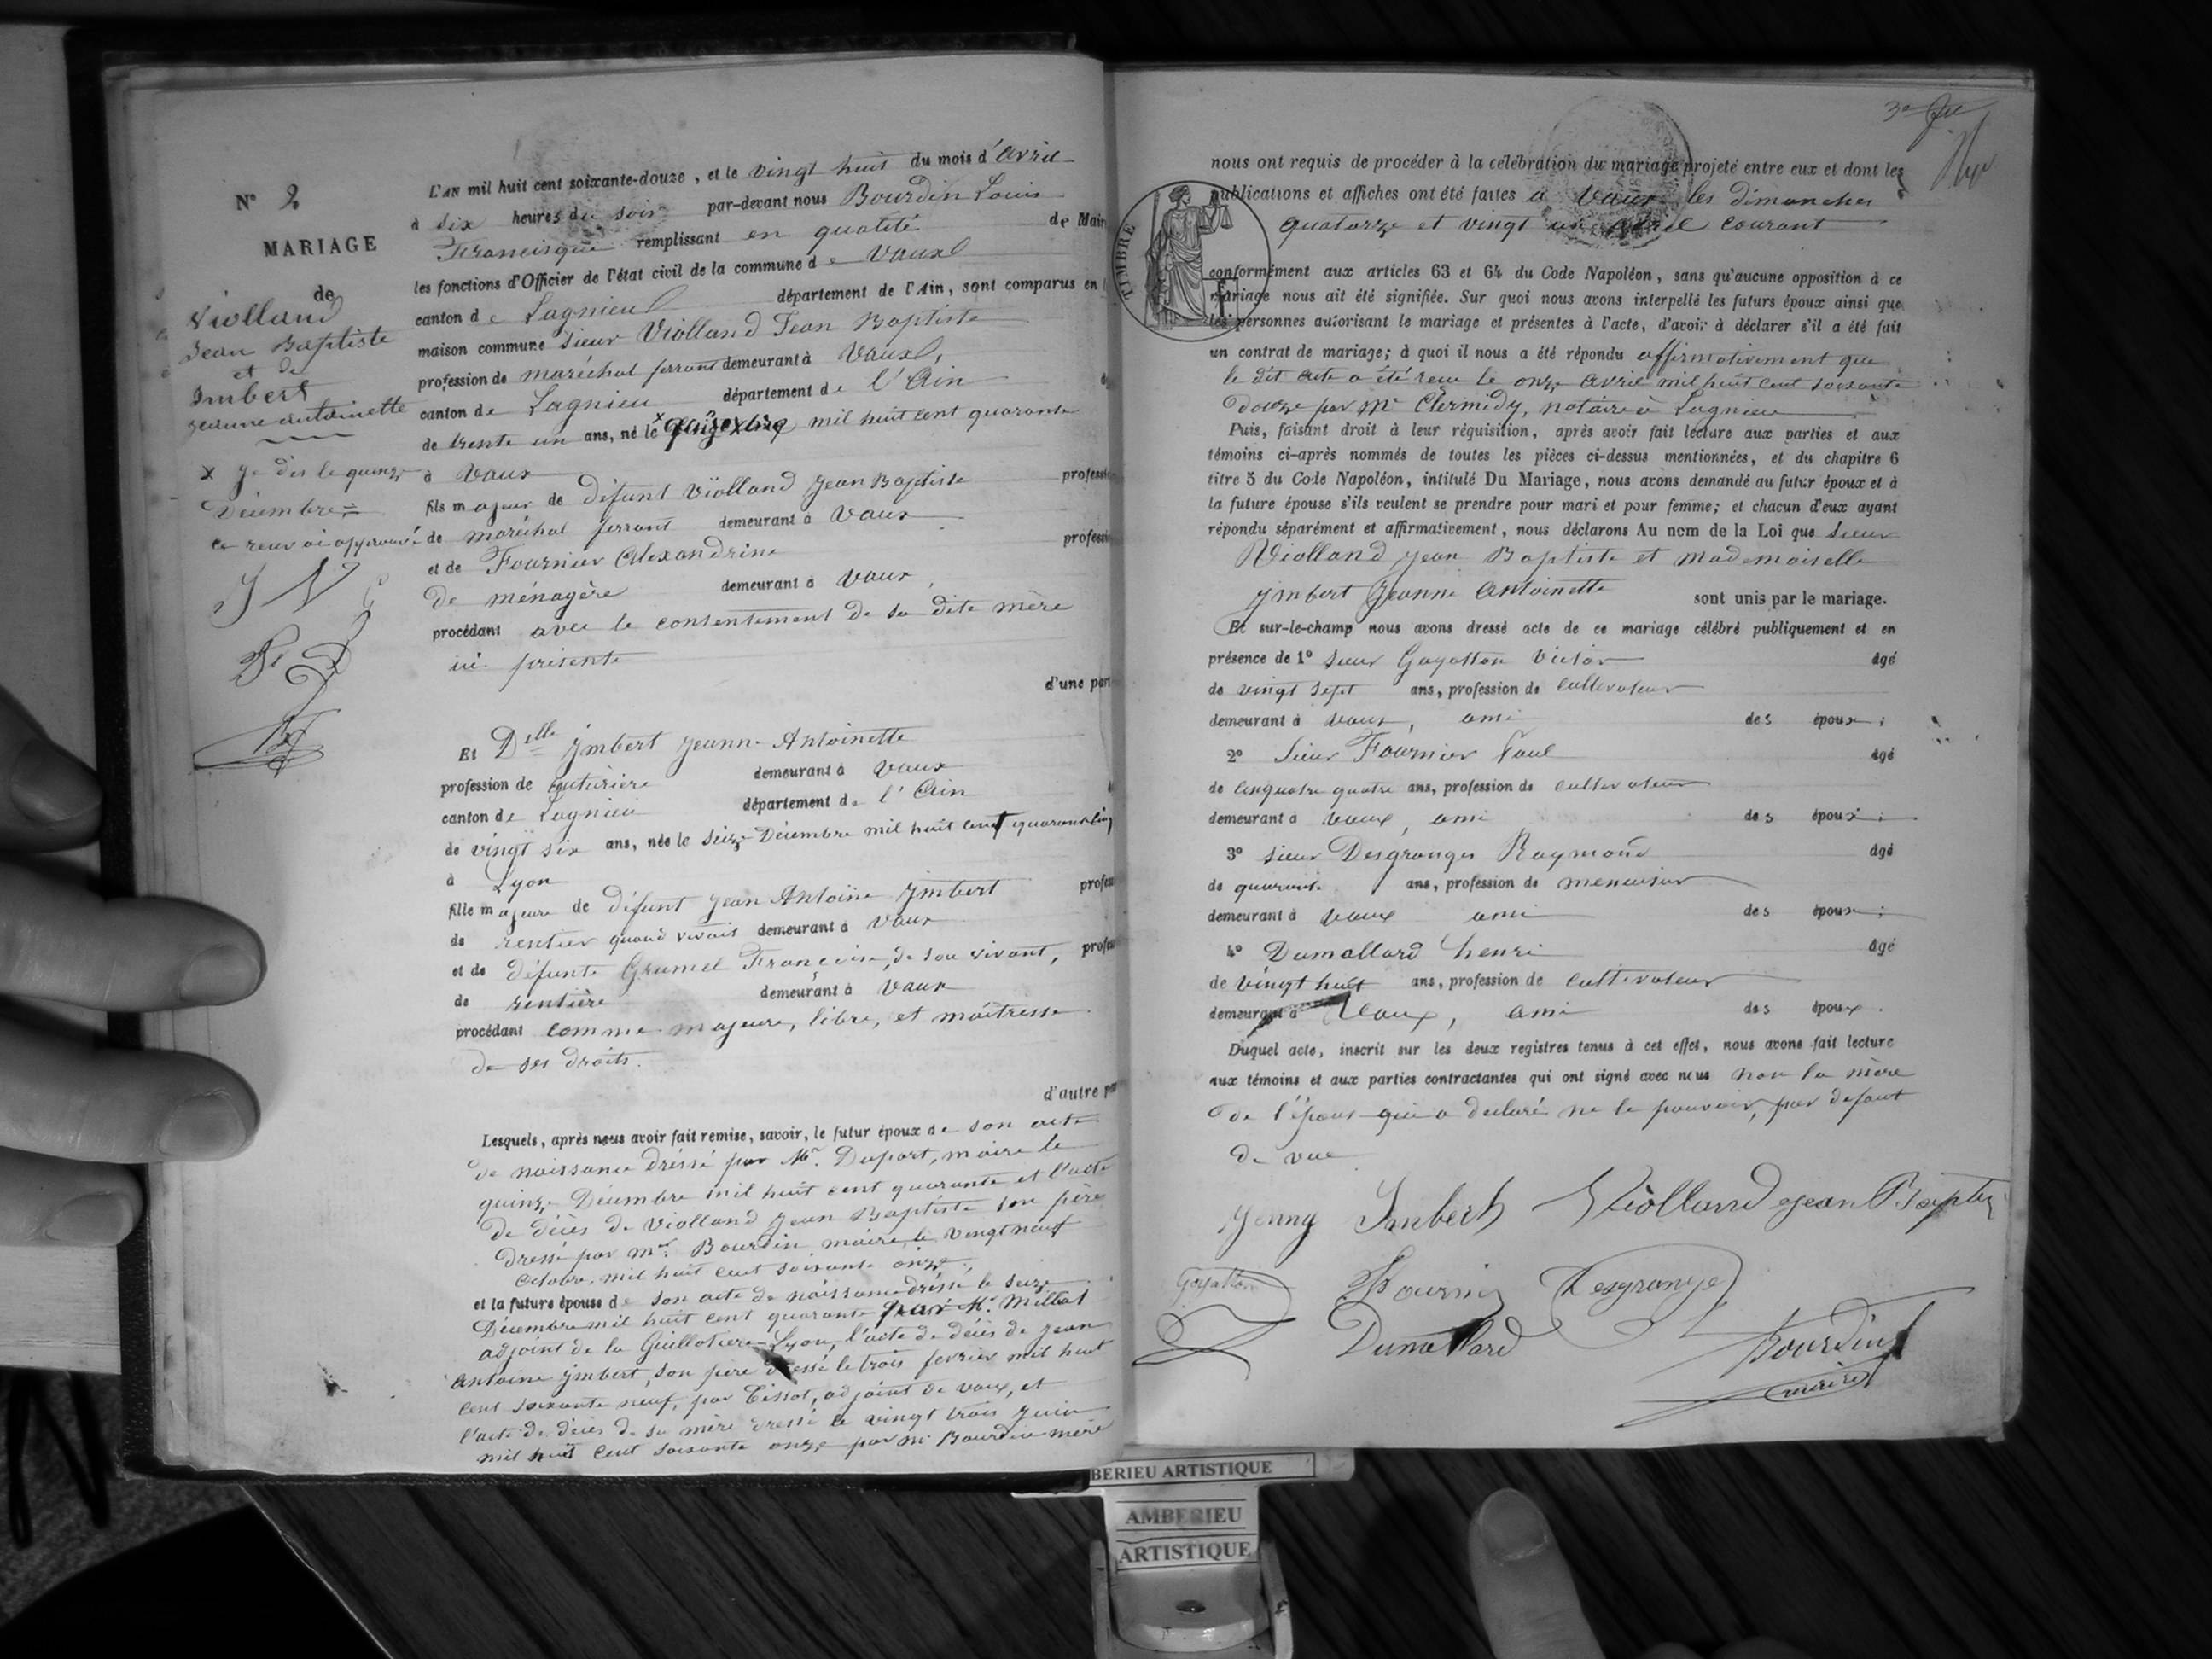 N° 2
MARIAGE
de
Violland
Jean Baptiste
et de
Imbert
Jeanne Antoinette
x Je dis le quinze
Décembre =
ce renvoi approuvé
J V
L'AN mil huit cent soixante-douze, et le vingt huit du mois d'avril
à six heures du soir par-devant nous Bourdin Louis
Francisque remplissant en qualité de Mair
les fonctions d'Officier de l'état civil de la commune de Vaux
canton de Lagnieu département de l'Ain, sont comparus en l
maison commune Sieur Violland Jean Baptiste
profession de maréchal ferrant demeurant à Vaux,
canton de Lagnieu département de l'Ain
de trente un ans, né le x mil huit cent quarante
à Vaux
fils majeur de défunt Violland Jean Baptiste professio
de maréchal ferrant demeurant à Vaux
et de Fournier Alexandrine professio
de ménagère demeurant à Vaux,
procédant avec le consentement de sa dite mère
ici présente
d'une part
Et Delle Jmbert Jeanne Antoinette
profession de couturière demeurant à Vaux
canton de Lagnieu département de l'Ain
de vingt six ans, née le seize Décembre mil huit cent quarante cinq
à Lyon
fille majeure de défunt Jean Antoine Jmbert profess
de rentier quand vivait demeurant à Vaux
et de défunte Grumel Françoise, de son vivant, profess
de rentière demeurant à Vaux
procédant comme majeure, libre, et maîtresse
de ses droits.
d'autre pa
Lesquels, après nous avoir fait remise, savoir, le futur époux de son acte
de naissance dréssé par Mr. Duport, maire le
quinze Décembre mil huit cent quarante et l'acte
de décès de Violland Jean Baptiste son père
dressé par Mr. Bourdin maire, le vingt neuf
octobre, mil huit cent soixante onze,
et la future épouse de son acte de naissance dréssé le seize
Décembre mil huit cent quarante par Mr. Millat
adjoint de la Guillotière-Lyon, l'acte de décès de Jean
Antoine Jmbert, son père dressé le trois fevrier mil huit
cent soixante neuf, par Tissot, adjoint de Vaux, et
l'acte de décès de sa mère dressé le vingt trois Juin
mil huit cent soixante onze par Mr Bourdin maire
3e
nous ont requis de procéder à la célébration du mariage projeté entre eux et dont les
publications et affiches ont été faites à Vaux les dimanches
quatorze et vingt un avril courant
TIMBRE
conformément aux articles 63 et 64 du Code Napoléon, sans qu'aucune opposition à ce
mariage nous ait été signifiée. Sur quoi nous avons interpellé les futurs époux ainsi que
les personnes autorisant le mariage et présentes à l'acte, d'avoir à déclarer s'il a été fait
un contrat de mariage; à quoi il nous a été répondu affirmativement que
le dit acte a été reçu le onze avril mil huit cent soixante
douze par Me Clermidy, notaire à Lagnieu
Puis, faisant droit à leur réquisition, après avoir fait lecture aux parties et aux
témoins ci-après nommés de toutes les pièces ci-dessus mentionnées, et du chapitre 6
titre 5 du Code Napoléon, intitulé Du Mariage, nous avons demandé au futur époux et à
la future épouse s'ils veulent se prendre pour mari et pour femme; et chacun d'eux ayant
répondu séparément et affirmativement, nous déclarons Au nom de la Loi que sieur
Violland Jean Baptiste et mademoiselle
Jmbert Jeanne Antoinette sont unis par le mariage.
Et sur-le-champ nous avons dressé acte de ce mariage célébré publiquement et en
présence de 1° Sieur Goyatton Victor âgé
de vingt sept ans, profession de cultivateur
demeurant à Vaux, ami des époux;
2° Sieur Fournier Paul âgé
de cinquante quatre ans, profession de cultivateur
demeurant à Vaux, ami des époux;
3° Sieur Desgranges Raymond âgé
de quarante ans, profession de menuisier
demeurant à Vaux ami des époux;
4° Dumollard henri âgé
de vingt huit ans, profession de cultivateur
demeurant à Vaux, ami des époux.
Duquel acte, inscrit sur les deux registres tenus à cet effet, nous avons fait lecture
aux témoins et aux parties contractantes qui ont signé avec nous non la mère
de l'époux qui a déclaré ne le pouvoir, par défaut
de vue
Jenny Imbert Violland Jean Baptiste
Goyatton Fournier Desgranges
Dumollard Bourdin
maire
BERIEU ARTISTIQUE
AMBERIEU
ARTISTIQUE